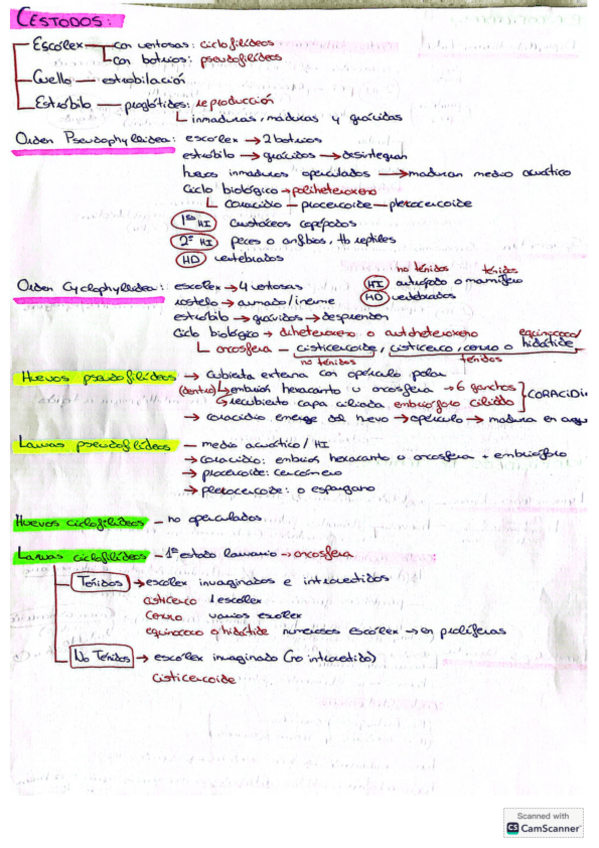 CESTODOS:
Escólex con ventosas: ciclofilídeos
con botrios: pseudofilídeos
Cuello — estrobilación
Estróbilo — proglótides: reproducción
inmaduras, maduras y grávidas
Orden Pseudophyllidea: escólex → 2 botrios
estróbilo → grávidos → desintegran
huevos inmaduros operculados → maduran medio acuático
Ciclo biológico → poliheteroxeno
coracidio — procercoide — plerocercoide
1er HI crustáceos copépodos
2º HI peces o anfibios, tb reptiles
HD vertebrados
Orden Cyclophyllidea: escólex → 4 ventosas
no ténidos ténidos
HI artrópodo o mamífero
rostelo → armado/inerme
HD vertebrados
estróbilo → grávidos → desprenden
Ciclo biológico → diheteroxeno o autoheteroxeno
oncosfera — cisticercoide, cisticerco, cenuro o equinococo/hidátide
no ténidos ténidos
Huevos pseudofilídeos → cubierta externa con opérculo polar
(dentro) embrión hexacanto u oncosfera → 6 ganchos
recubierto capa ciliada embrióforo ciliado
CORACIDI
→ coracidio emerge del huevo → opérculo → madura en agua
Larvas pseudofilídeos — medio acuático / HI
→ coracidio: embrión hexacanto u oncosfera + embrióforo
→ procercoide: cercómero
→ plerocercoide: o espargano
Huevos ciclofilídeos — no operculados
Larvas ciclofilídeos — 1er estado larvario → oncosfera
Ténidos → escólex invaginados e introvertidos
cisticerco 1 escólex
cenuro varios escólex
equinococo o hidátide numerosos escólex → en prolíferas
No Ténidos → escólex invaginado (no introvertido)
cisticercoide
Scanned with
CS CamScanner